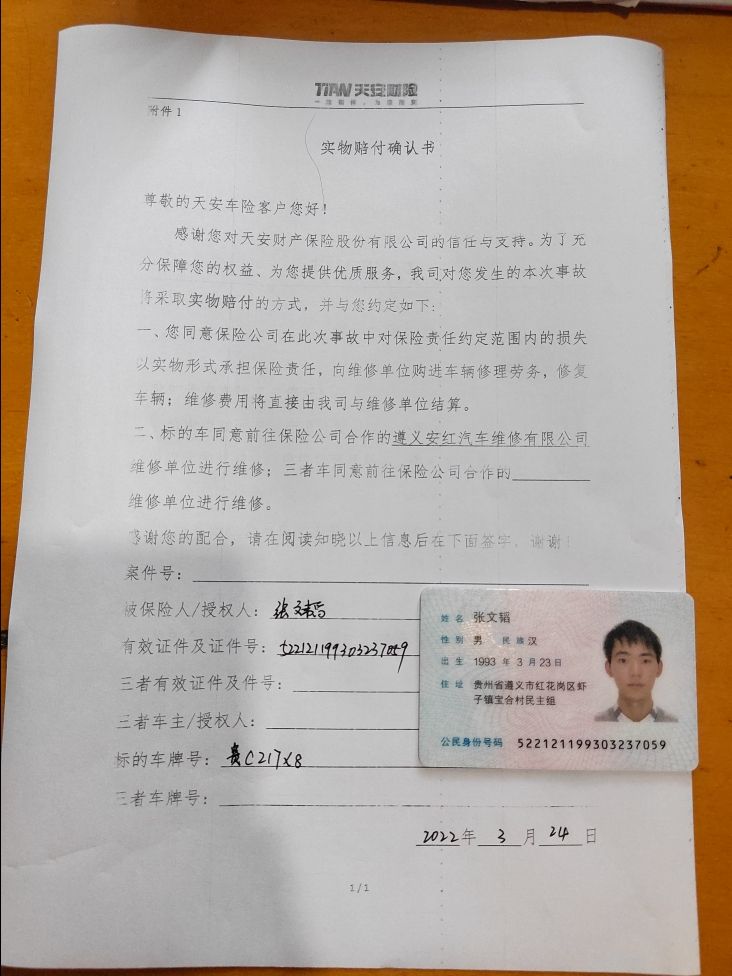 TIAN 天安财险
附件1
实物赔付确认书
尊敬的天安车险客户您好!
感谢您对天安财产保险股份有限公司的信任与支持。为了充
分保障您的权益、为您提供优质服务，我司对您发生的本次事故
将采取实物赔付的方式，并与您约定如下:
一、您同意保险公司在此次事故中对保险责任约定范围内的损失
以实物形式承担保险责任，向维修单位购进车辆修理劳务，修复
车辆；维修费用将直接由我司与维修单位结算。
二、标的车同意前往保险公司合作的遵义安红汽车维修有限公司
维修单位进行维修；三者车同意前往保险公司合作的
维修单位进行维修。
感谢您的配合，请在阅读知晓以上信息后在下面签字，谢谢！
案件号：
被保险人/授权人：张文韬
有效证件及证件号：522121199303237059
三者有效证件及件号：
三者车主/授权人：
标的车牌号：贵C217X8
三者车牌号：
2022年3月24日
1/1
姓名 张文韬
性别 男 民族 汉
出生 1993 年 3 月 23 日
住址 贵州省遵义市红花岗区虾
子镇宝合村民主组
公民身份号码 522121199303237059